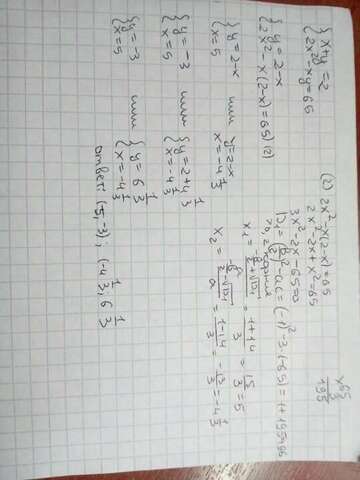 {x+y=2
{2x²-xy=65
{y=2-x
{2x²-x(2-x)=65 (2)
{y=2-x или y=2-x
{x=5 x=-4 1/3
{y=-3 или {y=2+4 1/3
{x=5 {x=-4 1/3
{y=-3 или {y=6 1/3
{x=5 {x=-4 1/3
ответ: (5,-3); (-4 1/3; 6 1/3
(2) 2x²-x(2-x)=65
2x²-2x+x²=65
3x²-2x-65=0
D₁=(b/2)²-ac=(-1)²-3·(-65)=1+195=196
x₁=(-b/2+√D₁)/a=(1+14)/3=15/3=5
x₂=(-b/2-√D₁)/a=(1-14)/3=-13/3=-4 1/3
x65
3
195